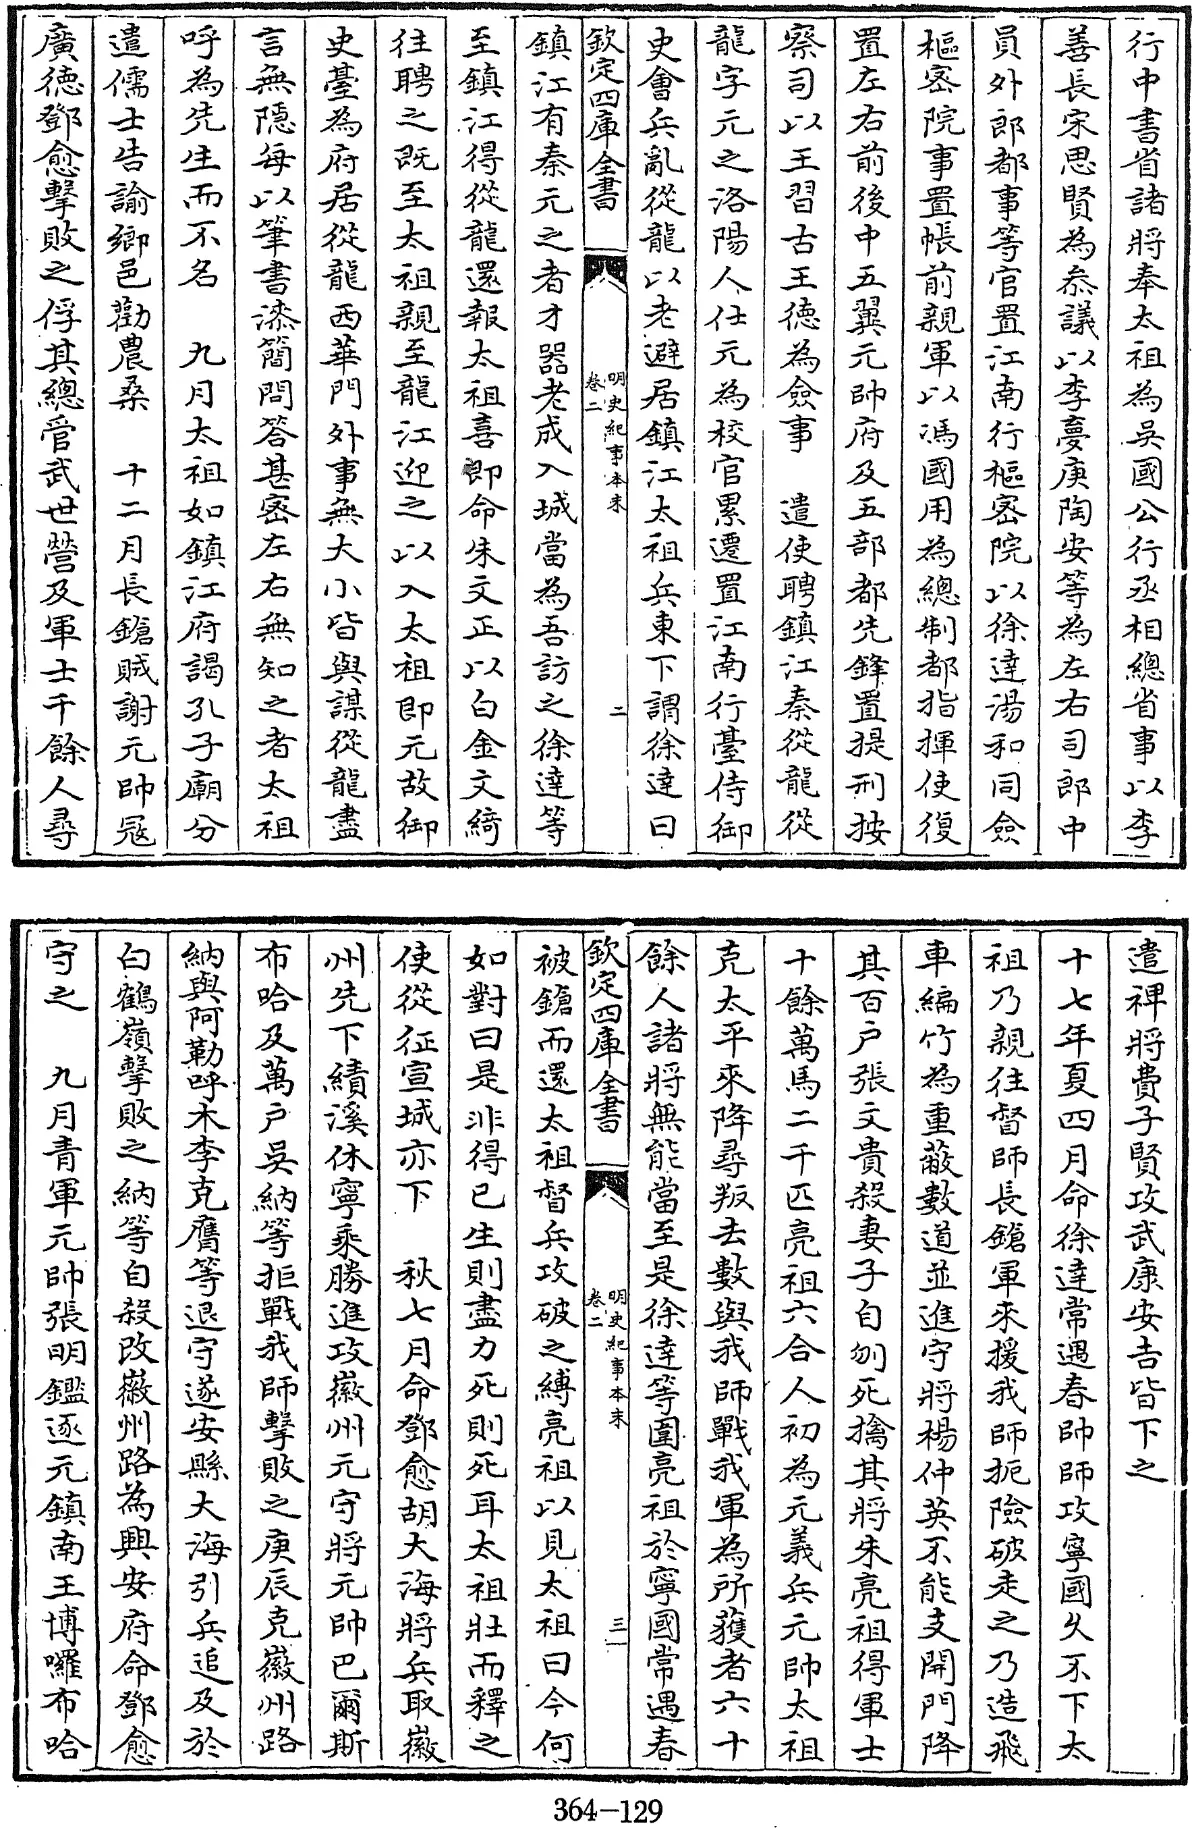 行中書省諸將奉太祖為吳國公行丞相總省事以李
善長宋思賢為叅議以李夢庚陶安等為左右司郎中
員外郎都事等官置江南行樞宻院以徐達湯和同僉
樞宻院事置帳前親軍以馮國用為總制都指揮使復
置左右前後中五翼元帥府及五部都先鋒置提刑按
察司以王習古王徳為僉事　遣使聘鎮江秦從龍從
龍字元之洛陽人仕元為校官累遷置江南行臺侍御
史會兵亂從龍以老避居鎮江太祖兵東下謂徐達曰
欽定四庫全書
明史紀事本末
卷二
二
鎮江有秦元之者才器老成入城當為吾訪之徐達等
至鎮江得從龍還報太祖喜即命朱文正以白金文綺
往聘之既至太祖親至龍江迎之以入太祖即元故御
史臺為府居從龍西華門外事無大小皆與謀從龍盡
言無隠每以筆書漆簡問答甚宻左右無知之者太祖
呼為先生而不名　九月太祖如鎮江府謁孔子廟分
遣儒士告諭鄉邑勸農桑　十二月長鎗賊謝元帥冦
廣徳鄧愈擊敗之俘其總管武世營及軍士千餘人尋
遣禆將費子賢攻武康安吉皆下之
十七年夏四月命徐達常遇春帥師攻寧國久不下太
祖乃親往督師長鎗軍來援我師扼險破走之乃造飛
車編竹為重蔽數道並進守將楊仲英不能支開門降
其百户張文貴殺妻子自刎死擒其將朱亮祖得軍士
十餘萬馬二千匹亮祖六合人初為元義兵元帥太祖
克太平來降尋叛去數與我師戰我軍為所獲者六十
餘人諸將無能當至是徐達等圍亮祖於寧國常遇春
欽定四庫全書
明史紀事本末
卷二
三
被鎗而還太祖督兵攻破之縛亮祖以見太祖曰今何
如對曰是非得已生則盡力死則死耳太祖壯而釋之
使從征宣城亦下　秋七月命鄧愈胡大海將兵取徽
州先下績溪休寧乘勝進攻徽州元守將元帥巴爾斯
布哈及萬户吳納等拒戰我師擊敗之庚辰克徽州路
納與阿勒呼木李克膺等退守遂安縣大海引兵追及於
白鶴嶺擊敗之納等自殺改徽州路為興安府命鄧愈
守之　九月青軍元帥張明鑑逐元鎮南王博囉布哈
364-129